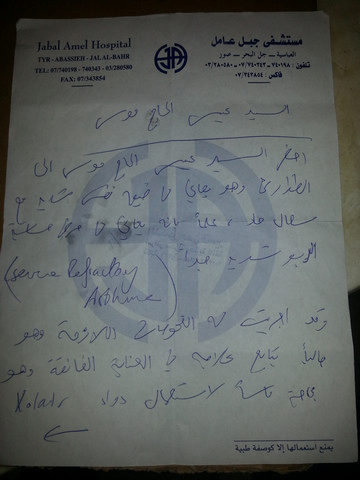 Jabal Amel Hospital
TYR - ABASSIEH - JAL AL-BAHR
TEL: 07/740198 - 740343 - 03/280580
FAX: 07/343854
مستشفى جبل عامل
العباسية - جل البحر - صور
تلفون: ٠٧/٧٤٠٣٤٣-٧٤٠١٩٨ - ٠٣/٢٨٠٥٨٠
فاكس: ٠٧/٣٤٣٨٥٤
السيد عيسى الحاج موسى
احضر السيد عيسى الحاج موسى الى
الطوارئ وهو يعاني من ضيق نفس شديد مع
سعال حاد، علماً بانه يعاني من مرض حساسية
الربو شديد جداً
(Severe Refractory
Asthma)
وقد اجريت له الفحوصات اللازمة وهو
حالياً يتابع علاجه في العناية الفائقة وهو
بحاجة ماسة لاستعمال دواء Xolair
يمنع استعمالها إلا كوصفة طبية